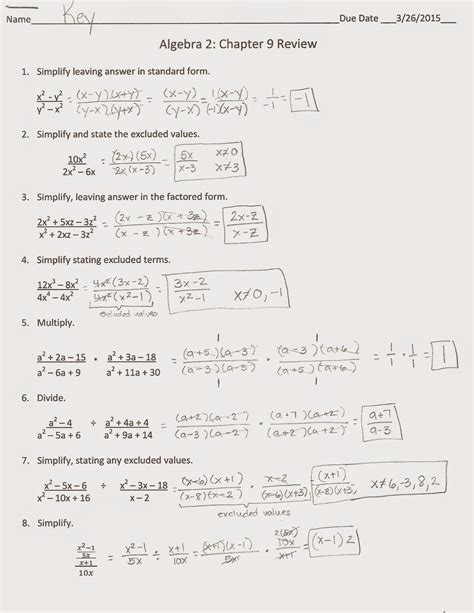 Name Key Due Date 3/26/2015
Algebra 2: Chapter 9 Review
1. Simplify leaving answer in standard form.
x² - y² / y² – x² = (x-y)(x+y) / (y-x)(y+x) = (x-y) / (y-x) = 1(x-y) / (-1)(x-y) = 1 / -1 = -1
2. Simplify and state the excluded values.
10x² / 2x² – 6x = (2x)(5x) / 2x(x-3) = 5x / x-3 x≠0 x≠3
3. Simplify, leaving answer in the factored form.
2x² + 5xz – 3z² / x² + 2xz – 3z² = (2x - z)(x + 3z) / (x - z)(x + 3z) = 2x-z / x-z
4. Simplify stating excluded terms.
12x³ – 8x² / 4x⁴ – 4x² = 4x²(3x-2) / 4x²(x²-1) = 3x-2 / x²-1 x≠0, -1
excluded values
5. Multiply.
1 1
a² + 2a – 15 / a² – 6a + 9 • a² + 3a – 18 / a² + 11a + 30 = (a+5)(a-3) / (a-3)(a-3) · (a-3)(a+6) / (a+5)(a+6) = 1/1 · 1/1 = 1
1 1
6. Divide.
a² – 4 / a² – 5a + 6 ÷ a² + 4a + 4 / a² + 9a + 14 = (a+2)(a-2) / (a-3)(a-2) · (a+7)(a+2) / (a+2)(a+2) = a+7 / a-3
7. Simplify, stating any excluded values.
x² – 5x – 6 / x² – 10x + 16 ÷ x² – 3x – 18 / x – 2 = (x-6)(x+1) / (x-8)(x-2) · x-2 / (x-6)(x+3) = (x+1) / (x-8)(x+3) x≠6,-3,8,2
excluded values
8. Simplify.
x²–1 / 5x / x+1 / 10x = x²-1 / 5x ÷ x+1 / 10x = (x+1)(x-1) / 5x · 2(5x) 10x / x+1 = (x-1)2